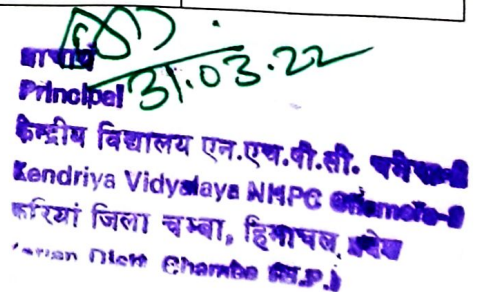 31.03.22
प्राचार्य
Principal
केन्द्रीय विद्यालय एन.एच.पी.सी.
Kendriya Vidyalaya NHPC
करियां जिला चम्बा, हिमाचल प्रदेश
Distt Chamba (H.P.)